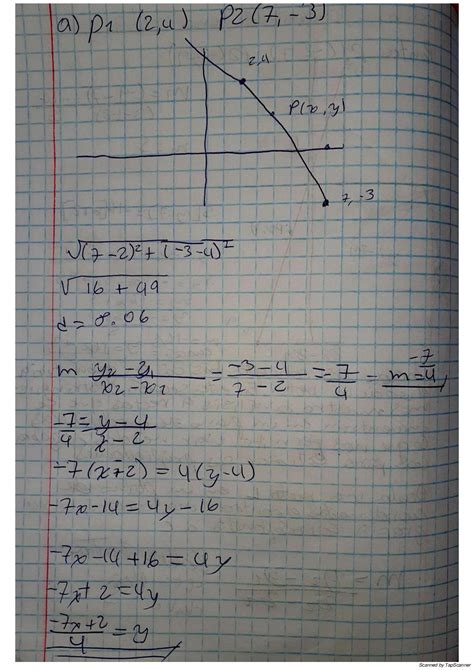 a) P1 (2,4) P2(7,-3)
2,4
P(x,y)
7,-3
√(7-2)²+(-3-4)²
√16+49
d=8.06
m y2-y1/x2-x1 = -3-4/7-2 = -7/4 - m=-7/4,
-7/4=y-4/x-2
-7(x+2)=4(y-4)
-7x-14=4y-16
-7x-14+16=4y
-7x+2=4y
-7x+2/4=y
Scanned by TapScanner